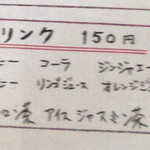 リンク 150円
ヒー コーラ ジンジャエー
ヒー リンゴジュース オレンジジ
茶 アイスジャスミン茶